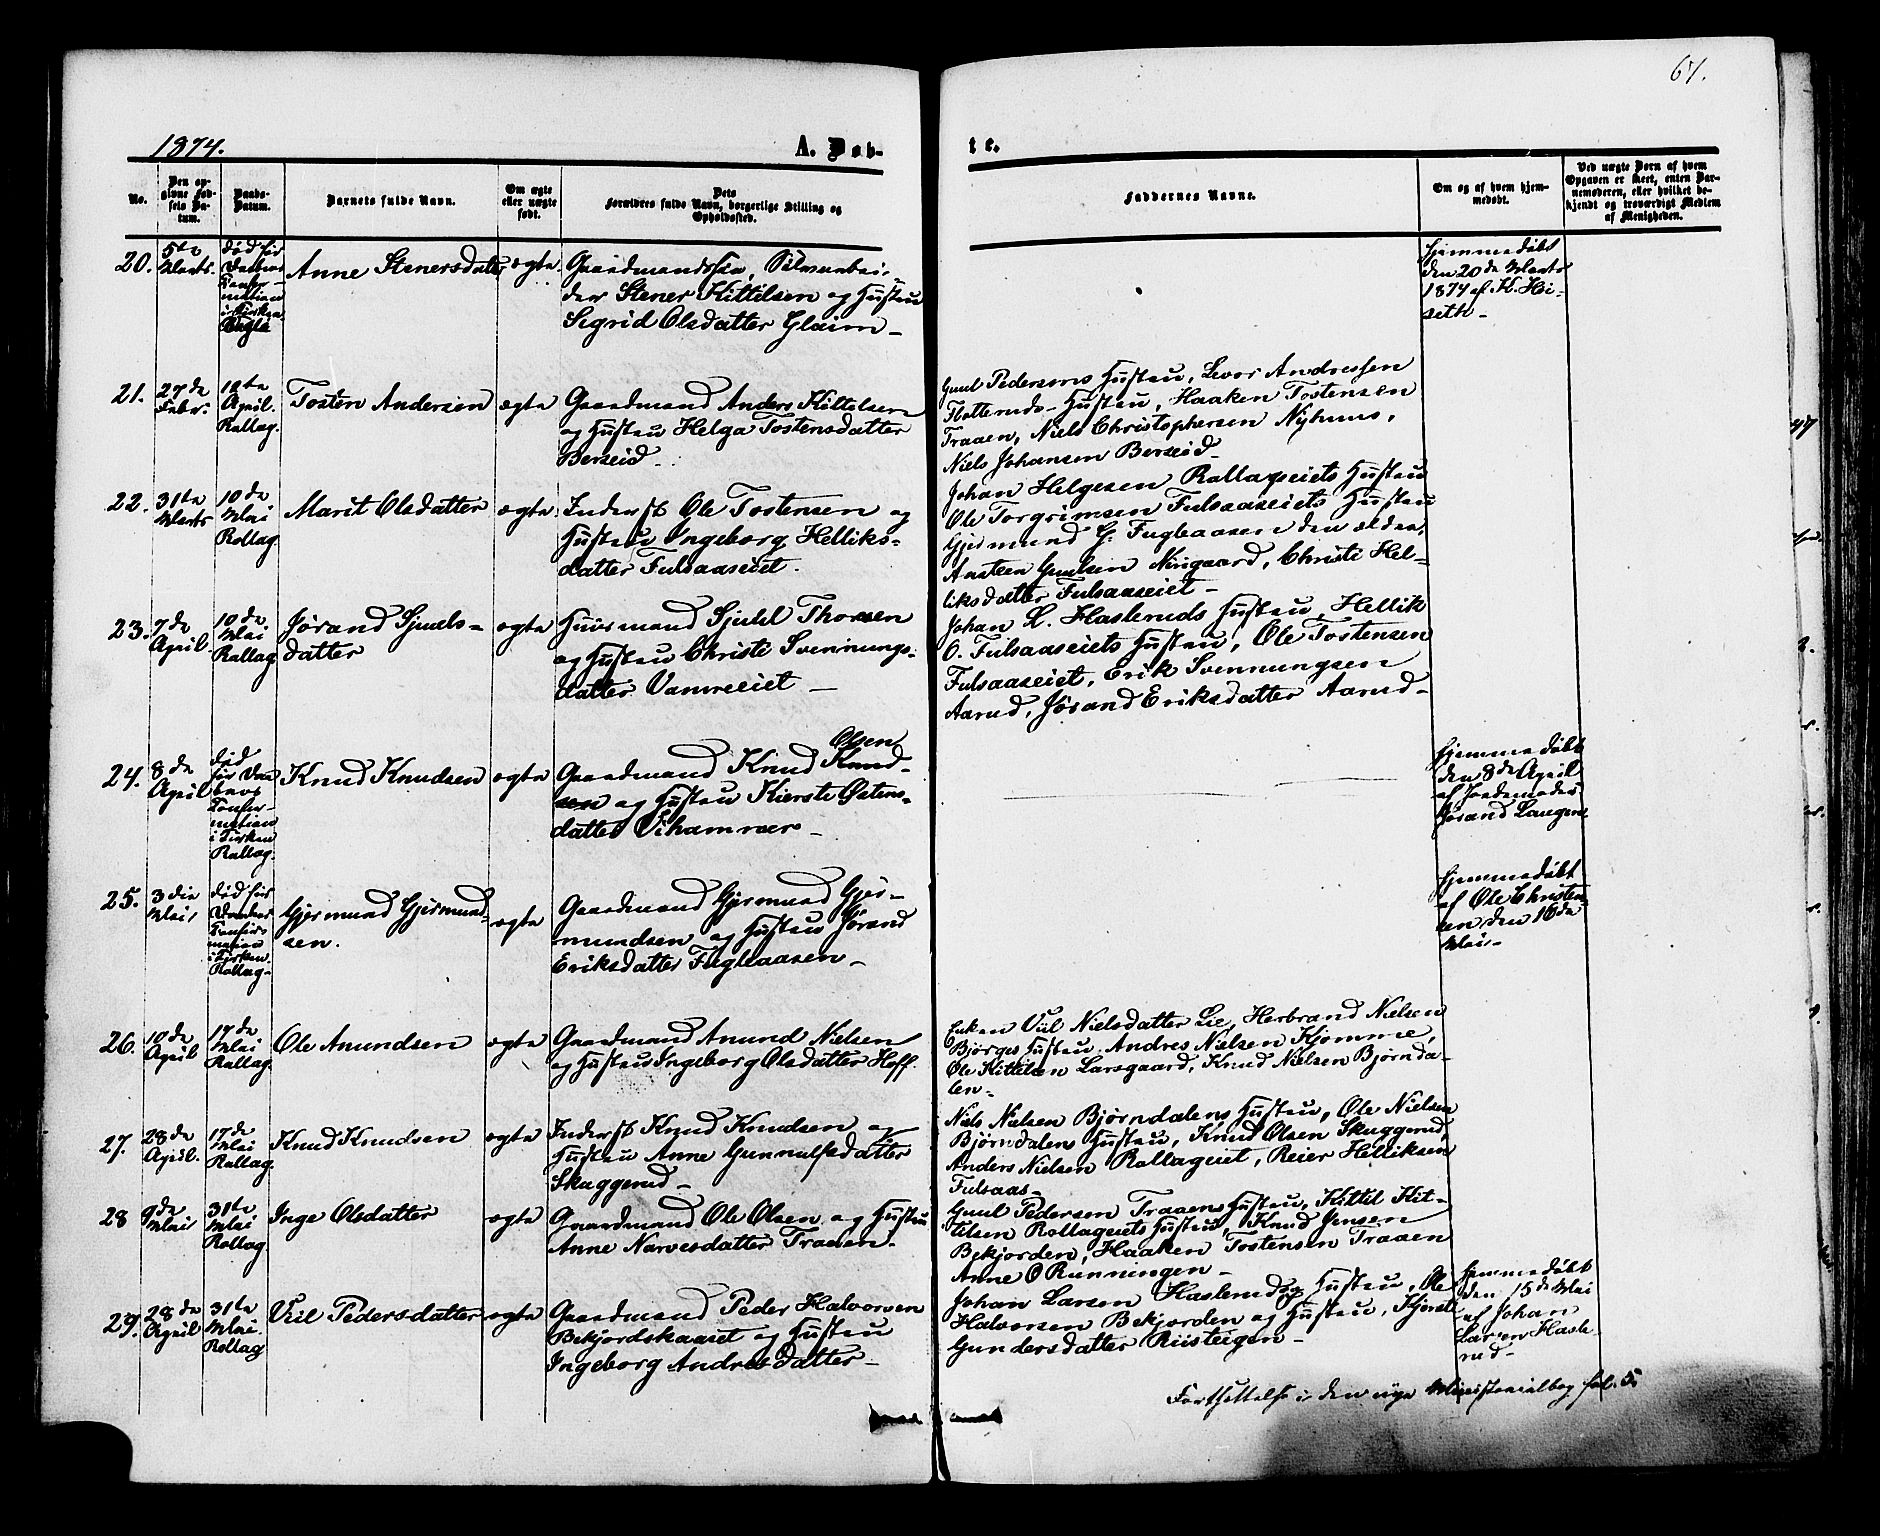 67.
1874.
A. Døb-
te.
No.
Den op-
givne Fød-
sels Da-
tum.
Daabs-
Datum.
Barnets fulde Navn.
Om ægte
eller uægte
født.
Dets
Forældres fulde Navn, borgerlige Stilling og
Opholdssted.
Faddernes Navne.
Om og af hvem hjem-
medøbt.
Ved uægte Børn af hvem
Opgaven er skeet, enten Bar-
nemoderen, eller hvilket be-
kjendt og troværdigt Medlem
af Menigheden.
20.
5te
Marts.
død før
Daabens
Confir-
mation
i Kirken.
Anne Stenersdatter
ægte
Gaardmandssøn,
der Stener Kittilsen og Hustru
Sigrid Olsdatter Glaim -
hjemmedøbt
den 20de Marts
1874 af K. Høi-
seth -
21.
27de
Febr.
10te
April.
Rollag.
Tosten Andersen
ægte
Gaardmand Anders Kittelsen
og Hustru Helga Tostensdatter
Berseid -
Guul Pedersens Hustru, Levor Andressen
Flotteruds - Hustru, Haaken Tostensen
Traaen, Niels Christophersen Nyhuus,
Niels Johansen Berseid -
22.
31te
Marts
10de
Mai
Rollag
Marit Olsdatter
ægte
Inderst Ole Tostensen og
Hustru Ingeborg Helliks-
datter Fulsaaseiet.
Johan Helgesen Rollagseiets Hustru
Ole Torgrimsen Fulsaaseiets Hustru
Gjermund G. Fugleaasen den ældre,
Ansteen Guulsen Nirigaard, Christi Hel-
liksdatter Fulsaaseiet -
23.
7de
April.
10de
Mai
Rollag
Jørand Sjuuls-
datter
ægte
Huusmand Sjulel Thorsen
og Hustru Christi Svennungs-
datter Vamreeiet -
Johan L. Hasleruds Hustru, Hellik
O. Fulsaaseiets Hustru, Ole Tostensen
Fulsaaseiet, Erik Svennungsen
Aarud, Jørand Eriksdatter Aarud -
24.
8de
April
død
før Daa-
bens
Confir-
mation
i Kirken
Rollag.
Knud Knudsen
ægte
Olsen
Gaardmand Knud Knud-
sen og Hustru Kierste Østens-
datter Vihammer -
hjemmedøbt
den 8de April
af Jordemoder
Jørand Laugen
25.
3die
Mai,
død før
Daabens
Confir-
mation
i Kirken.
Rollag -
Gjermund Gjermund-
sen.
ægte
Gaardmand Gjermund Gjer-
mundsen og Hustru Jørand
Eriksdatter Fugleaasen -
hjemmedøbt
af Ole Christen-
sen den 10de
Mai -
26.
10de
April
17de
Mai
Rollag.
Ole Amundsen
ægte
Gaardmand Amund Nielsen
og Hustru Ingeborg Olsdatter Hoff.
Enken Viil Nielsdatter Lie, Herbrand Nielsen
Bjørges Hustru, Andres Nielsen Kjomme,
Ole Kittilsen Larsgaard, Knud Nielsen Bjørnda-
len -
27.
28de
April.
17de
Mai
Rollag.
Knud Knudsen
ægte
Inderst Knud Knudsen og
Hustru Anne Gunnulfsdatter
Skuggerud -
Niels Nielsen Bjørndalens Hustru, Ole Nielsen
Bjørndalens Hustru, Knud Olsen Skuggerud,
Anders Nielsen Rollageiet, Reier Helliksen
Fulsaas -
28
9de
Mai
31te
Mai
Rollag.
Inge Olsdatter
ægte
Gaardmand Ole Olsen og Hustru
Anne Narvesdatter Traaen.
Guul Pedersen Traaens Hustru, Kittil Kit-
tilsen Rollageiets Hustru, Knud Jensen
Bekjorden, Haaken Tostensen Traaen
Anne O Runningen -
29.
28de
April
31te
Mai.
Rollag
Viil Pedersdatter
ægte
Gaardmand Peder Halvorsen
Bekjordskaaset og Hustru
Ingeborg Andresdatter -
Johan Larsen Haslerud og Hustru, Ole
Halvorsen Bekjorden og Hustru, Kjersti
Gundersdatter Riisteigen -
hjemmedøbt
den 15de Mai
af Johan
Larsen Hasle-
rud -
Fortsættelse i den nye Ministerialbog fol. 5.